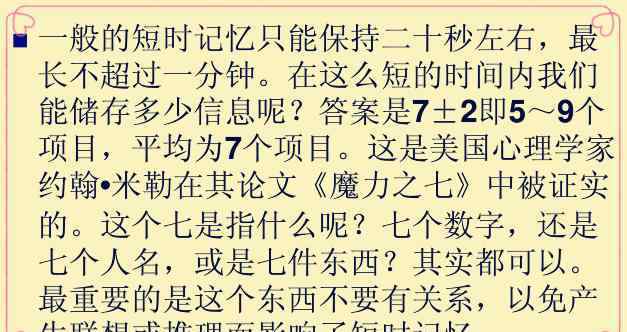 ■ 一般的短时记忆只能保持二十秒左右，最
长不超过一分钟。在这么短的时间内我们
能储存多少信息呢？答案是7±2即5～9个
项目，平均为7个项目。这是美国心理学家
约翰•米勒在其论文《魔力之七》中被证实
的。这个七是指什么呢？七个数字，还是
七个人名，或是七件东西？其实都可以。
最重要的是这个东西不要有关系，以免产
生联想或推理而影响了短时记忆